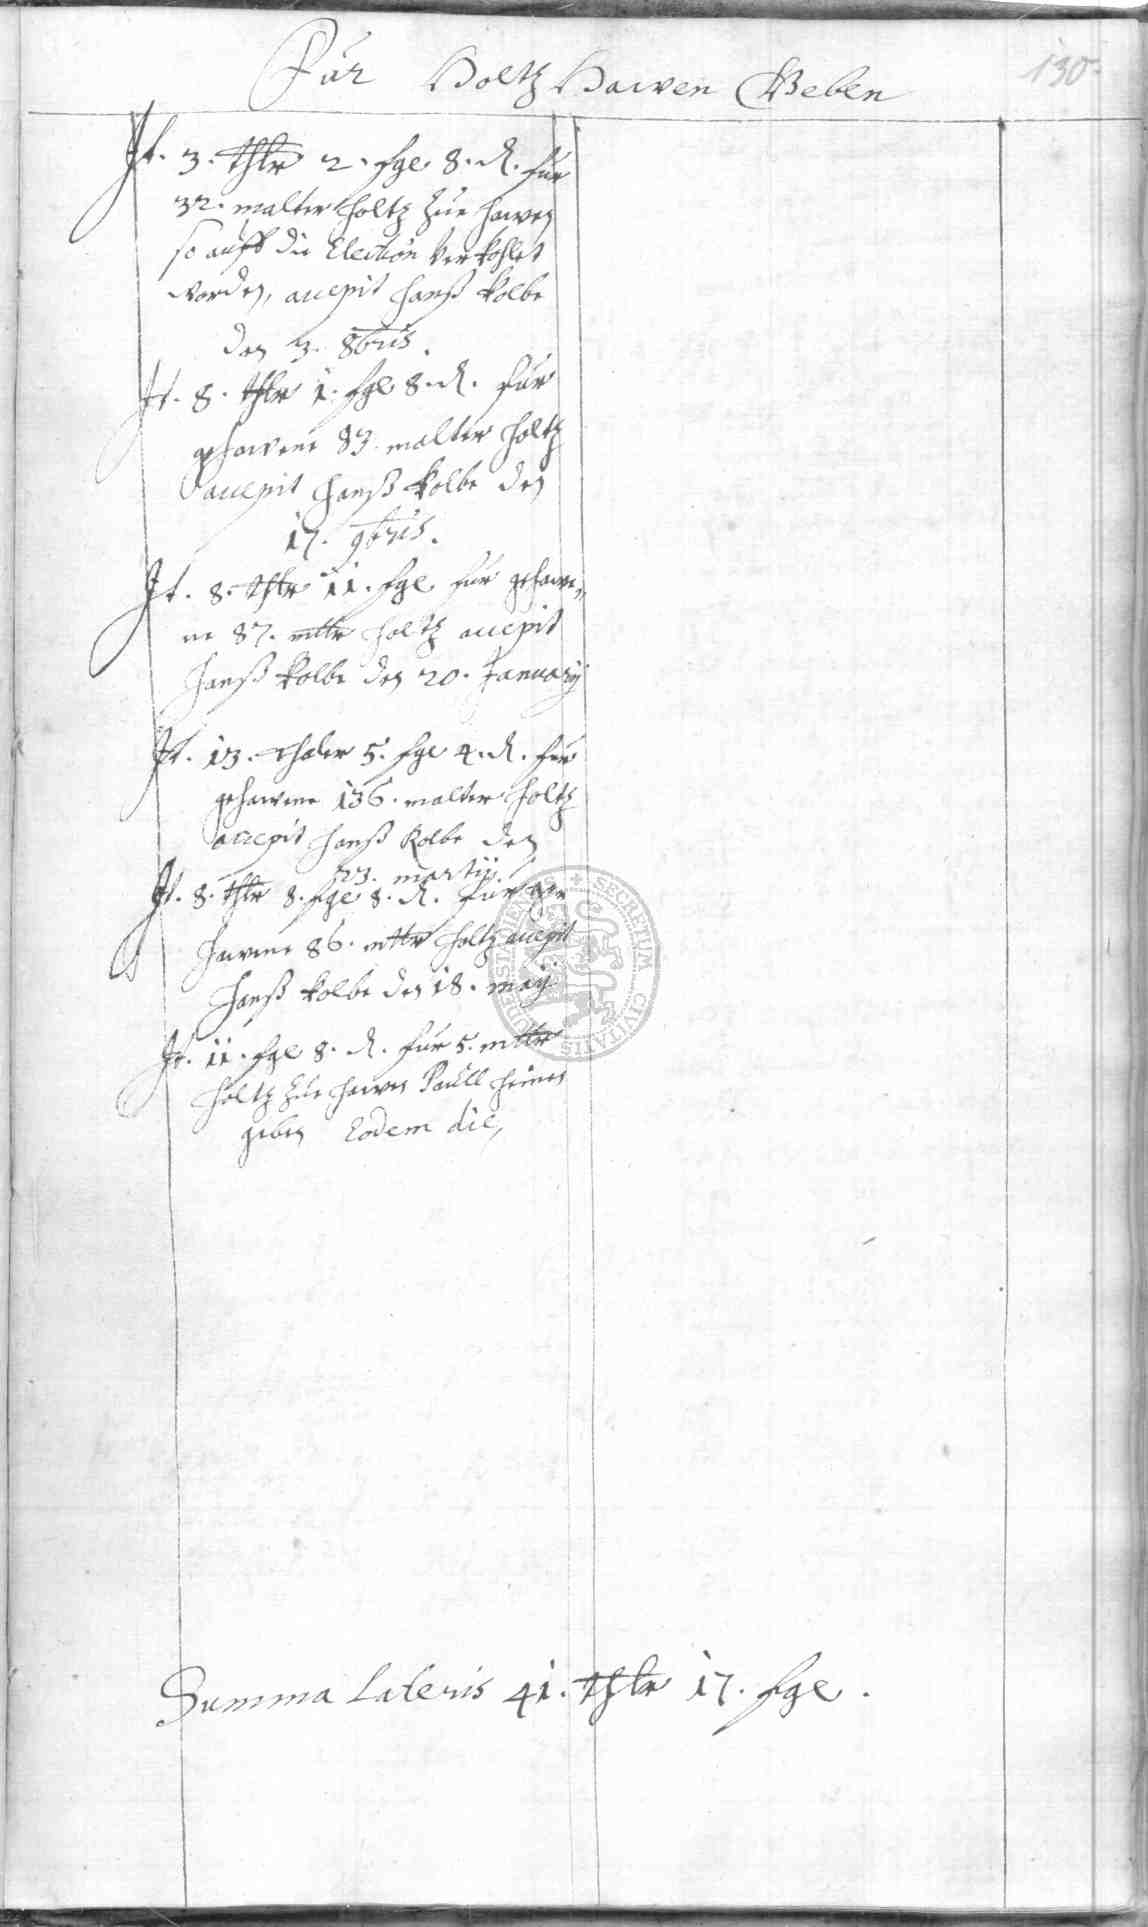 130.
Für Holtz Hawen Geben
It. 3. thlr 2. sgl 8. d. für
32. malter holtz zue hawen
so auff die Election verkohlet
worden, accepit Hanß Kolbe
den 3. 8bris.
It. 8. thlr 1. sgl 8. d. für
gehawene 83. malter holtz
accepit Hanß Kolbe den
17. 9bris.
It. 8. thlr 11. sgl für gehawe,,
ne 87. mltr holtz accepit
Hanß Kolbe den 20. January
It. 13. thaler 5. sgl 4. d. für
gehawene 136. malter holtz
accepit Hanß Kolbe den
23. martij.
It. 8. thlr 8. sgl 8. d. für ge
hawene 86. mltr holtz accepit
Hanß Kolbe den 18. maij
It. 11. sgl 8. d. für 5. mltr
holtz zue hawen Paull
geben Eodem die,
Summa Lateris 41. thlr 17. sgl.
SECRETUM CIVITATIS